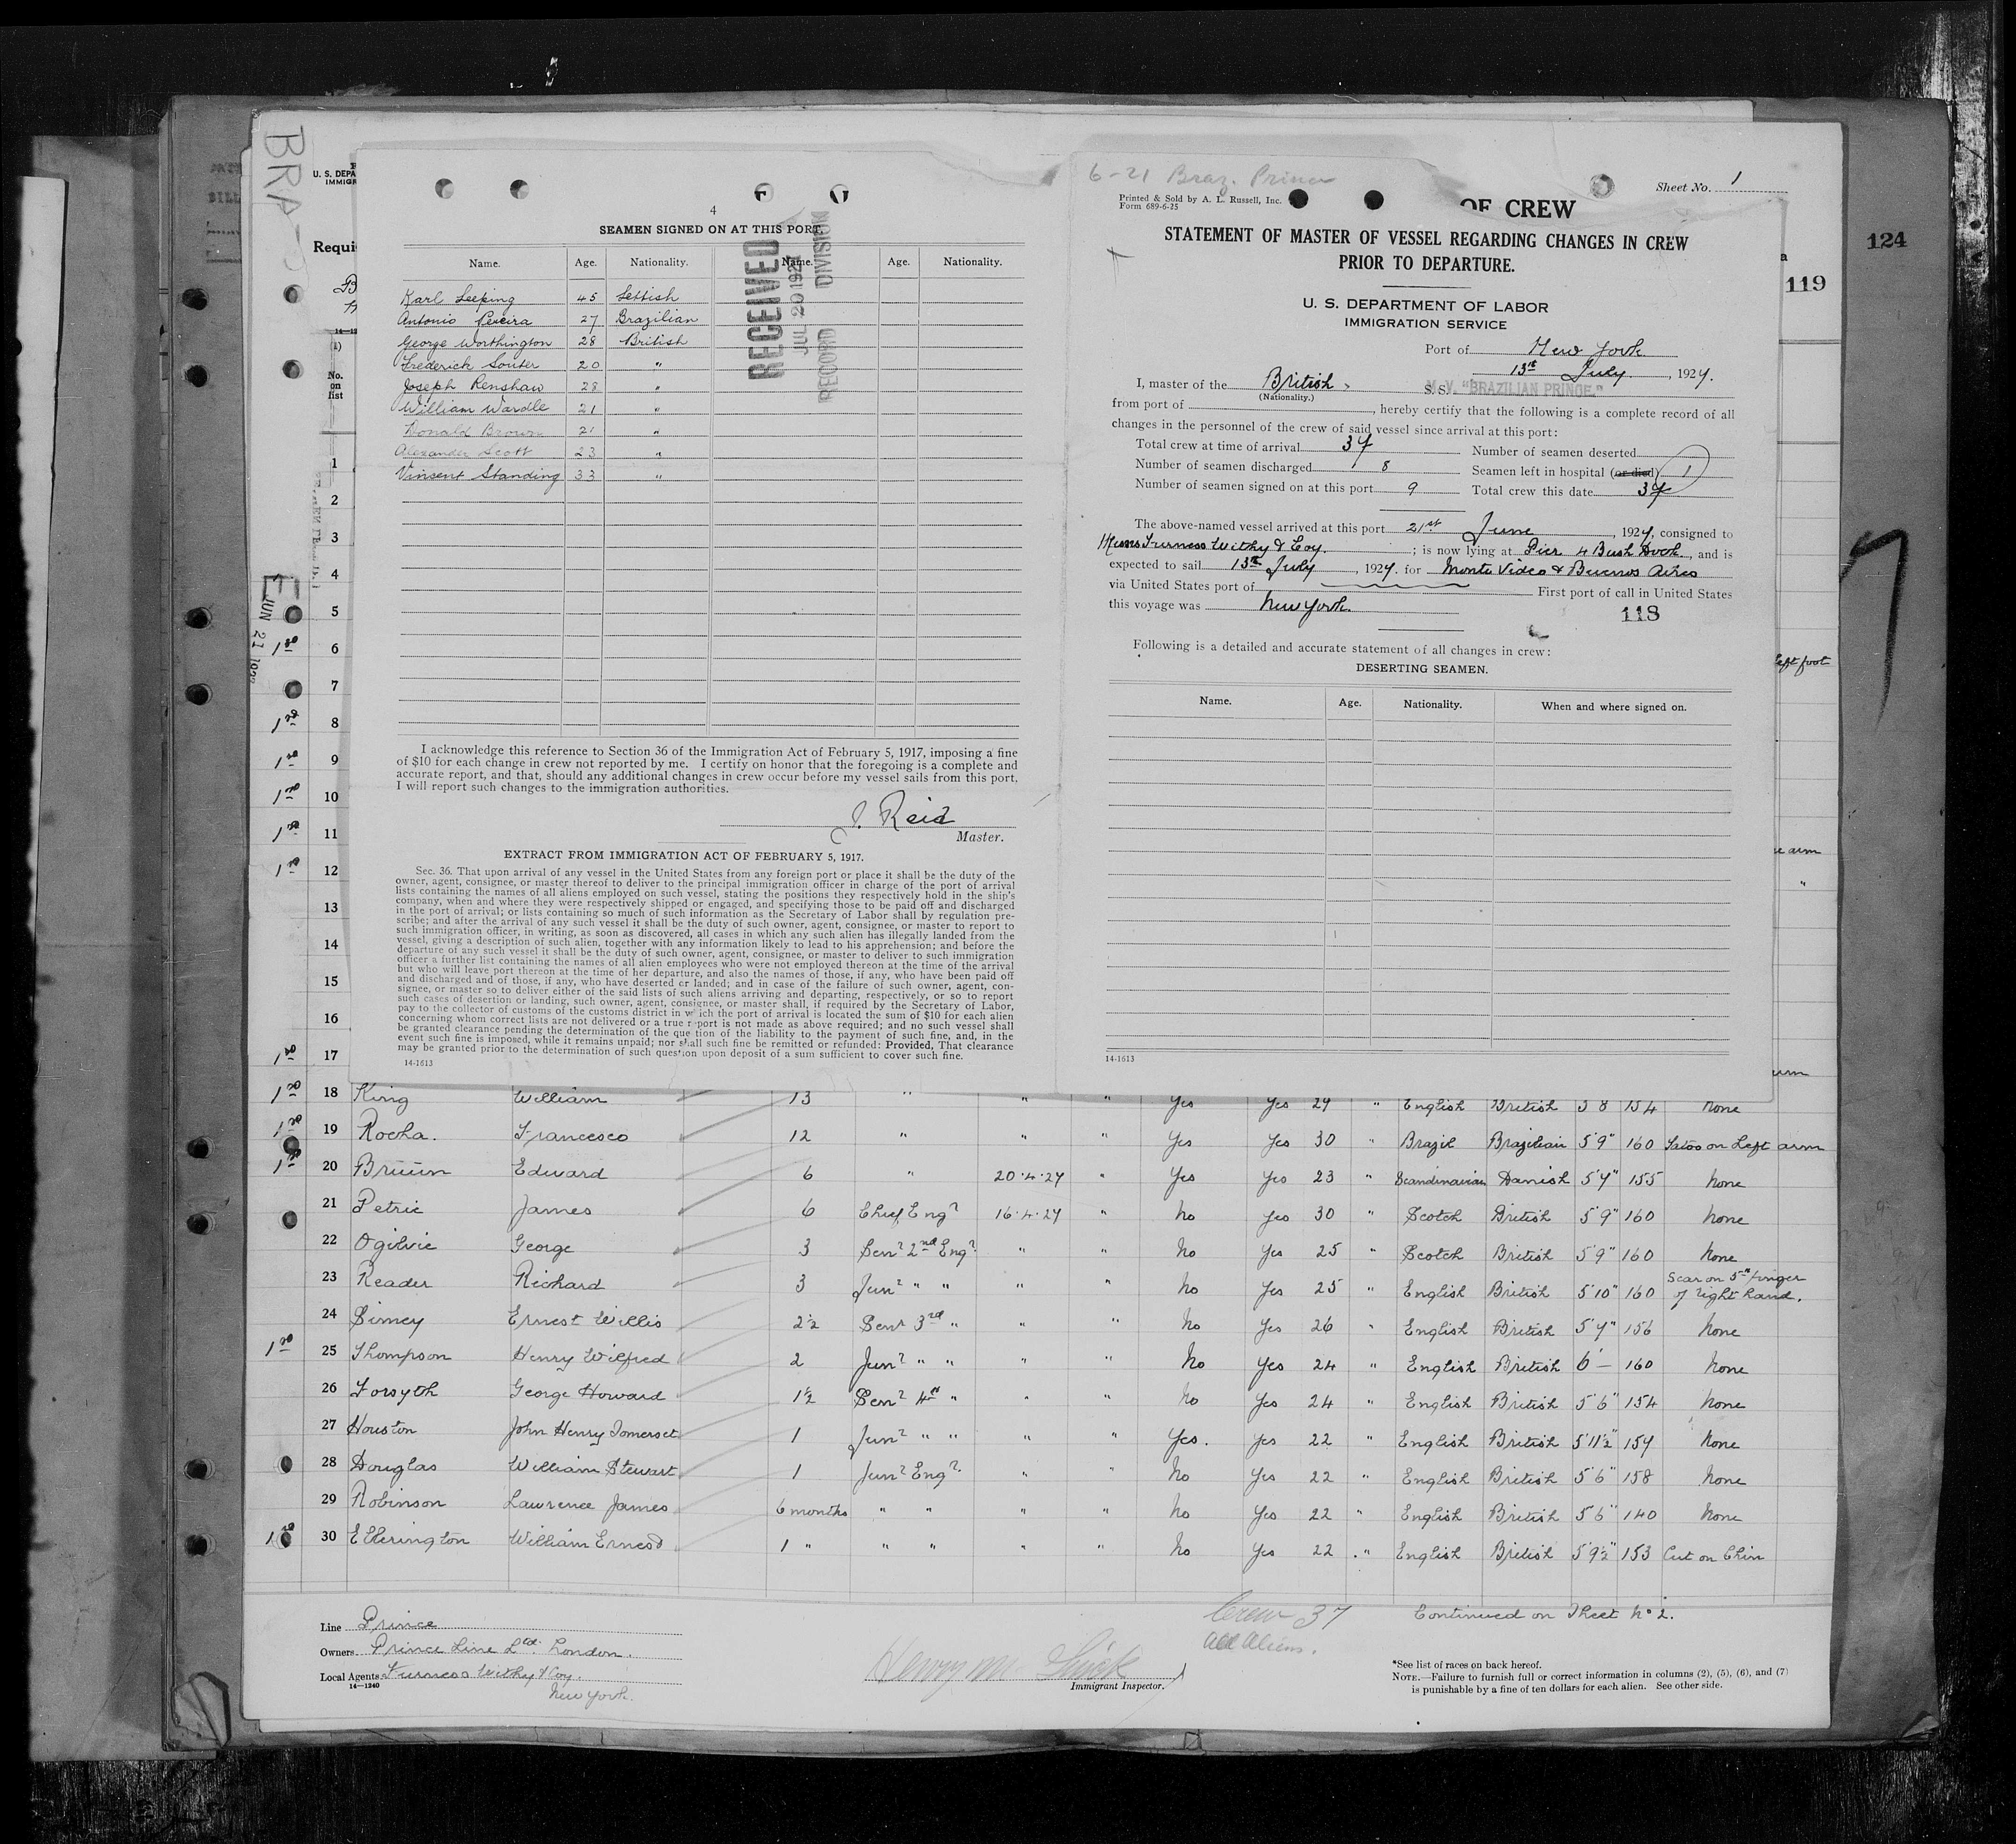 BRA
6-21 Braz. Prince
U. S. DEPA
IMMIGR
Requi
No.
on
list
4
SEAMEN SIGNED ON AT THIS PORT.
Name. Age. Nationality. Name. Age. Nationality.
Karl Leeping 45 Lettish
Antonio Pereira 27 Brazilian
George Worthington 28 British
Frederick Souter 20 "
Joseph Renshaw 28 "
William Wardle 21 "
Donald Brown 21 "
Alexander Scott 23 "
Vinsent Standing 33 "
RECEIVED
JUL 20 192
RECORD DIVISION
I acknowledge this reference to Section 36 of the Immigration Act of February 5, 1917, imposing a fine
of $10 for each change in crew not reported by me. I certify on honor that the foregoing is a complete and
accurate report, and that, should any additional changes in crew occur before my vessel sails from this port,
I will report such changes to the immigration authorities.
J. Reid
Master.
EXTRACT FROM IMMIGRATION ACT OF FEBRUARY 5, 1917.
Sec. 36. That upon arrival of any vessel in the United States from any foreign port or place it shall be the duty of the
owner, agent, consignee, or master thereof to deliver to the principal immigration officer in charge of the port of arrival
lists containing the names of all aliens employed on such vessel, stating the positions they respectively hold in the ship's
company, when and where they were respectively shipped or engaged, and specifying those to be paid off and discharged
in the port of arrival; or lists containing so much of such information as the Secretary of Labor shall by regulation pre-
scribe; and after the arrival of any such vessel it shall be the duty of such owner, agent, consignee, or master to report to
such immigration officer, in writing, as soon as discovered, all cases in which any such alien has illegally landed from the
vessel, giving a description of such alien, together with any information likely to lead to his apprehension; and before the
departure of any such vessel it shall be the duty of such owner, agent, consignee, or master to deliver to such immigration
officer a further list containing the names of all alien employees who were not employed thereon at the time of the arrival
but who will leave port thereon at the time of her departure, and also the names of those, if any, who have been paid off
and discharged and of those, if any, who have deserted or landed; and in case of the failure of such owner, agent, con-
signee, or master so to deliver either of the said lists of such aliens arriving and departing, respectively, or so to report
such cases of desertion or landing, such owner, agent, consignee, or master shall, if required by the Secretary of Labor,
pay to the collector of customs of the customs district in which the port of arrival is located the sum of $10 for each alien
concerning whom correct lists are not delivered or a true report is not made as above required; and no such vessel shall
be granted clearance pending the determination of the question of the liability to the payment of such fine, and, in the
event such fine is imposed, while it remains unpaid; nor shall such fine be remitted or refunded: Provided, That clearance
may be granted prior to the determination of such question upon deposit of a sum sufficient to cover such fine.
14-1613
Printed & Sold by A. L. Russell, Inc.
Form 689-6-25
OF CREW
Sheet No. 1
STATEMENT OF MASTER OF VESSEL REGARDING CHANGES IN CREW
PRIOR TO DEPARTURE.
U. S. DEPARTMENT OF LABOR
IMMIGRATION SERVICE
Port of New York
13th July, 1927.
I, master of the British S.S. M.V. "BRAZILIAN PRINCE"
(Nationality.)
from port of , hereby certify that the following is a complete record of all
changes in the personnel of the crew of said vessel since arrival at this port:
Total crew at time of arrival 37 Number of seamen deserted
Number of seamen discharged 8 Seamen left in hospital (or died) 1
Number of seamen signed on at this port 9 Total crew this date 37
The above-named vessel arrived at this port 21st June, 1927, consigned to
Messrs Furness Withy & Coy. ; is now lying at Pier 4 Bush Dock, and is
expected to sail 13th July, 1927. for Monte Video & Buenos Aires
via United States port of First port of call in United States
this voyage was New York.
118
Following is a detailed and accurate statement of all changes in crew:
DESERTING SEAMEN.
Name. Age. Nationality. When and where signed on.
14-1613
119
124
left foot
arm
JUN 21
1
2
3
4
5
6
7
8
9
10
11
12
13
14
15
16
17
18 King William 13 " " " Yes Yes 29 " English British 5 8 154 None
19 Rocha. Francesco 12 " " " Yes Yes 30 " Brazil Brazilian 5'9" 160 Tatoo on Left arm
20 Bruun Edward 6 " 20.4.27 " Yes Yes 23 " Scandinavian Danish 5'7" 155 None
21 Petrie James 6 Chief Engr 16.4.27 " No Yes 30 " Scotch British 5'9" 160 None
22 Ogilvie George 3 Senr 2nd Engr. " " No Yes 25 " Scotch British 5'9" 160 None
23 Reader Richard 3 Junr " " " " No Yes 25 " English British 5'10" 160 Scar on 5th finger of right hand.
24 Simey Ernest Willis 2½ Senr 3rd " " " No Yes 26 " English British 5'7" 156 None
25 Thompson Henry Wilfred 2 Junr " " " " No Yes 24 " English British 6'— 160 None
26 Forsyth George Howard 1½ Senr 4th " " " No Yes 24 " English British 5'6" 154 None
27 Houston John Henry Somerset 1 Junr " " " " Yes. Yes 22 " English British 5'11½" 157 None
28 Douglas William Stewart 1 Junr Engr. " " No Yes 22 " English British 5'6" 158 None
29 Robinson Lawrence James 6 months " " " " No Yes 22 " English British 5'6" 140 None
30 Etherington William Ernest 1 " " " " " No Yes 22 " English British 5'9½" 153 Cut on Chin
Line Prince
Owners Prince Line Ltd. London.
Local Agents Furness Withy & Coy.
14—1240
New York.
Immigrant Inspector.
Crew 37
all aliens.
Continued on Sheet No 2.
*See list of races on back hereof.
NOTE.—Failure to furnish full or correct information in columns (2), (5), (6), and (7)
is punishable by a fine of ten dollars for each alien. See other side.